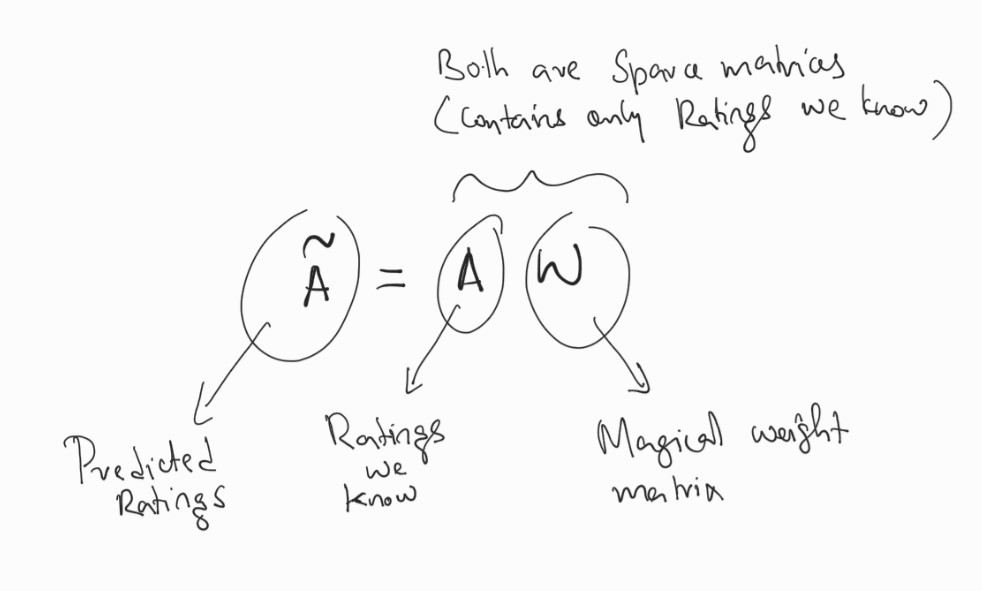 Both are Sparce matrices
(Contains only Ratings we know)
Ã = A W
Predicted
Ratings
Ratings
we
know
Magical weight
matrix